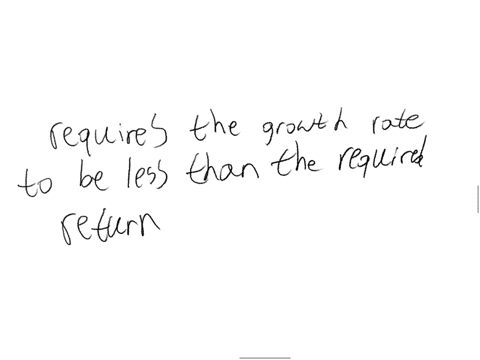 requires the growth rate
to be less than the required
return